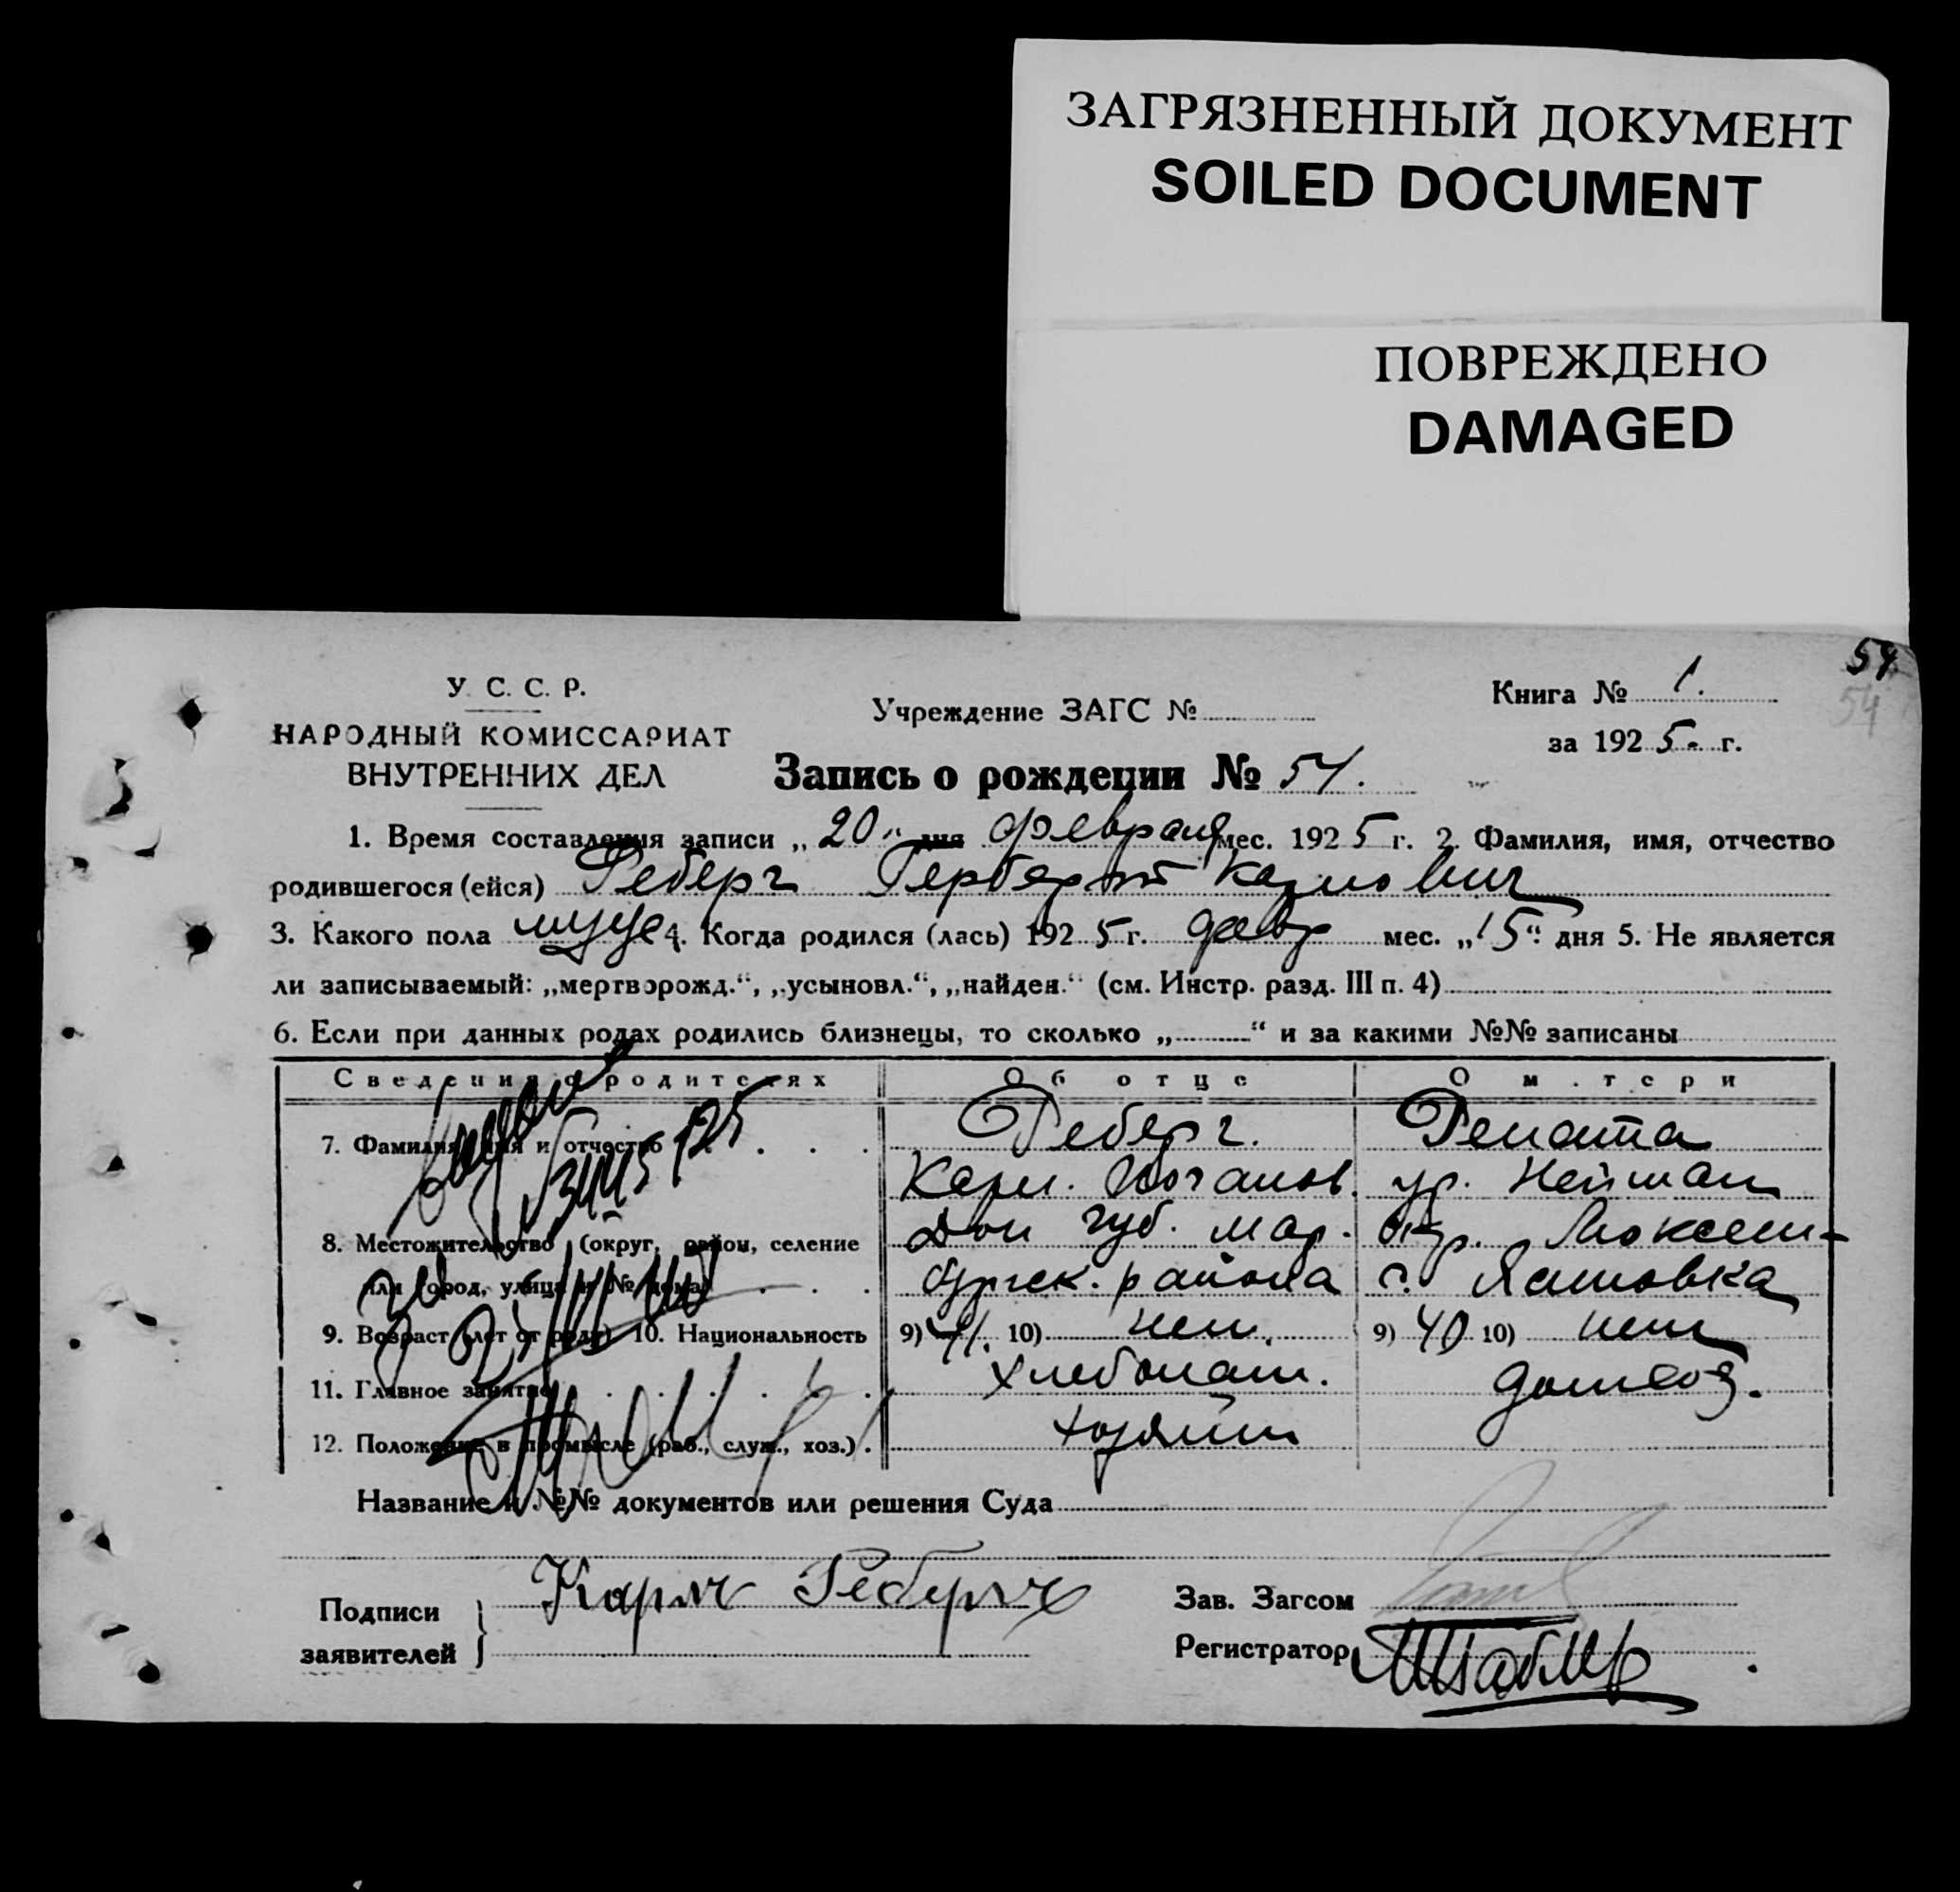 ЗАГРЯЗНЕННЫЙ ДОКУМЕНТ
SOILED DOCUMENT
ПОВРЕЖДЕНО
DAMAGED
54
54
У. С. С. Р.
НАРОДНЫЙ КОМИССАРИАТ
ВНУТРЕННИХ ДЕЛ
Учреждение ЗАГС №
Книга № 1.
за 1925 г.
Запись о рождении № 54.
1. Время составления записи „20“ дня февраля мес. 1925 г. 2. Фамилия, имя, отчество
родившегося (ейся) Реберг Герберт Карлович
3. Какого пола муж 4. Когда родился (лась) 1925 г. февр мес. „15“ дня 5. Не является
ли записываемый: „мертворожд.“, „усыновл.“, „найден.“ (см. Инстр. разд. III п. 4)
6. Если при данных родах родились близнецы, то сколько „ “ и за какими №№ записаны
Сведения о родителях Об отце О матери
7. Фамилия, имя и отчество . . . Реберг. Рената
Карл. Иоганов. ур. Нейман
8. Местожительство (округ, район, селение Дон губ. мар. окр.
или город, улица и № дома) . . . бургск. района с.
9. Возраст (лет от роду) 10. Национальность 9) 41. 10) нем. 9) 40 10) нем
11. Главное занятие . . . . . . хлебопаш. домхоз.
12. Положение в промысле (раб., служ., хоз.) . хозяин
Название и №№ документов или решения Суда
Подписи
заявителей
Карл Реберг
Зав. Загсом
Регистратор